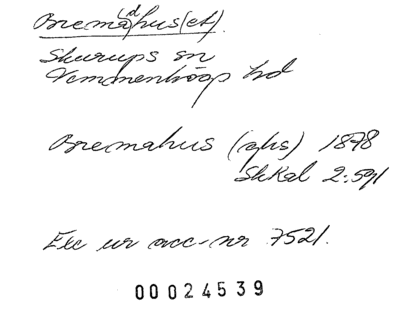 Bremadhus(et).
Skurups sn
Vemmenhögs hd
Bremahus (ghs) 1878
SkKal 2:591
Exc ur acc-nr 7521.
00024539